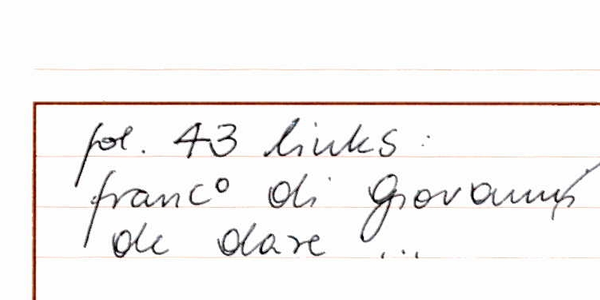 fol. 43 links:
franc° di Giovanni
de dare ...